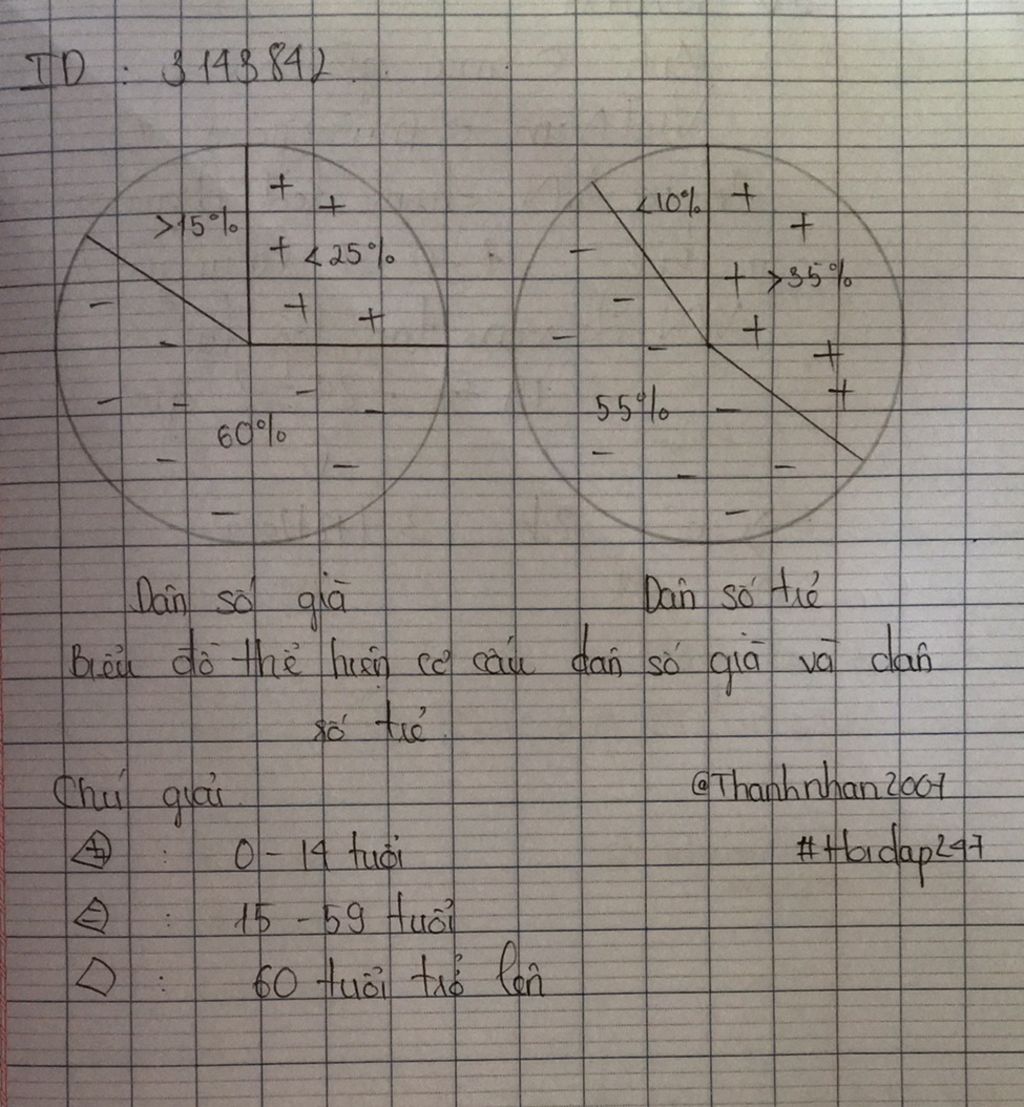 ID : 3143842
>15%
+ <25%
60%
<10%
+ >35%
55%
Dân số già
Dân số trẻ
Biểu đồ thể hiện cơ cấu dân số già và dân
số trẻ
Chú giải
@Thanhnhan2007
+ : 0 - 14 tuổi
#Hoidap247
- : 15 - 59 tuổi
: 60 tuổi trở lên